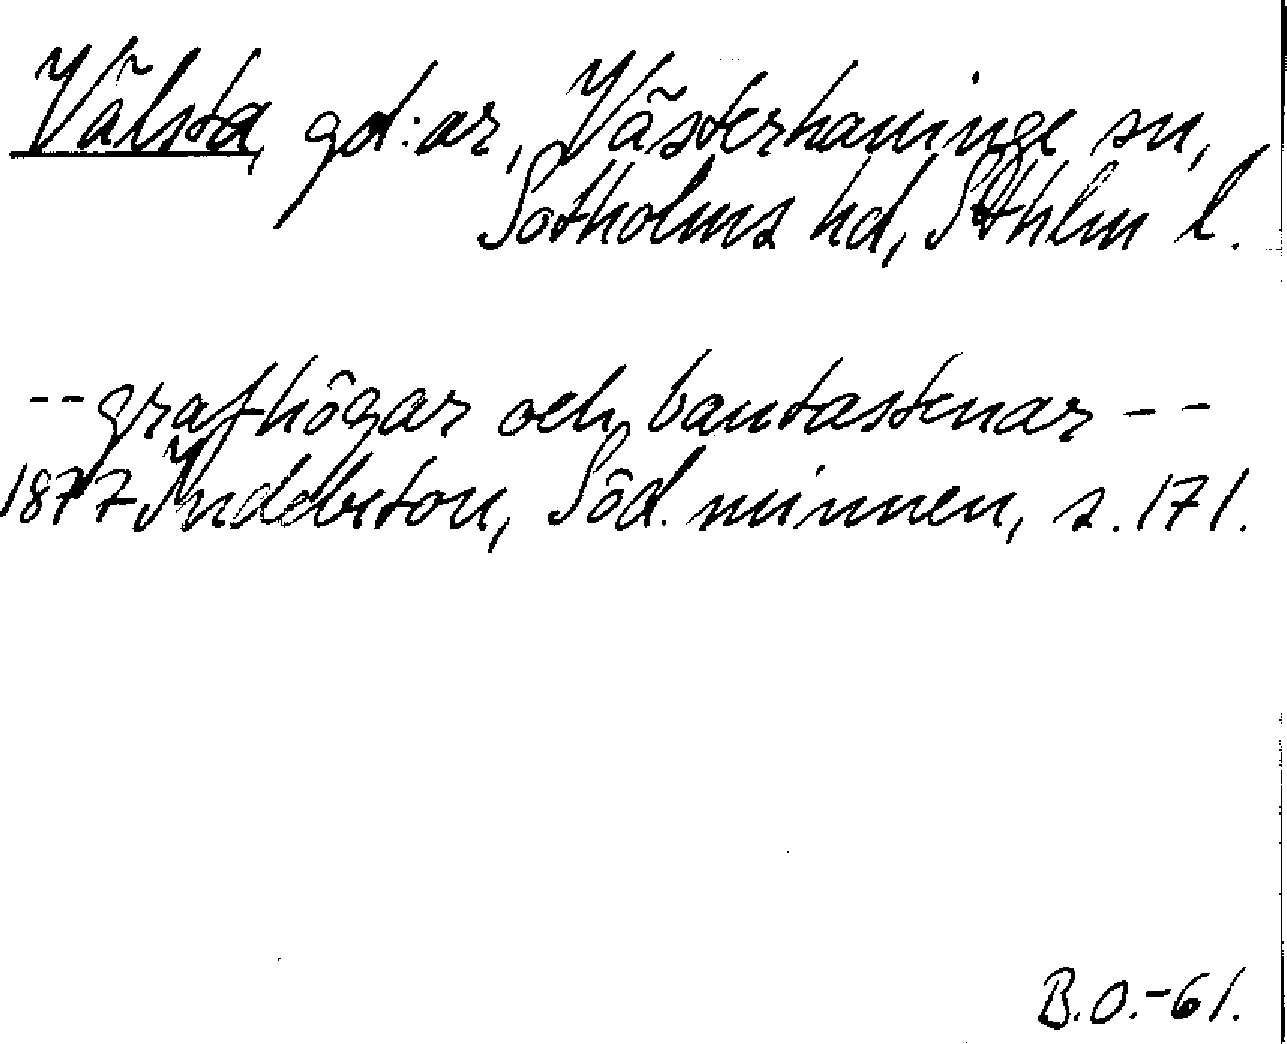 Välsta, gd:ar, Västerhaninge sn,
Sotholms hd, Sthlm l.
-- grafhögar och bautastenar --
1877 Indebetou, Söd. minnen, s. 171.
B.O.-61.